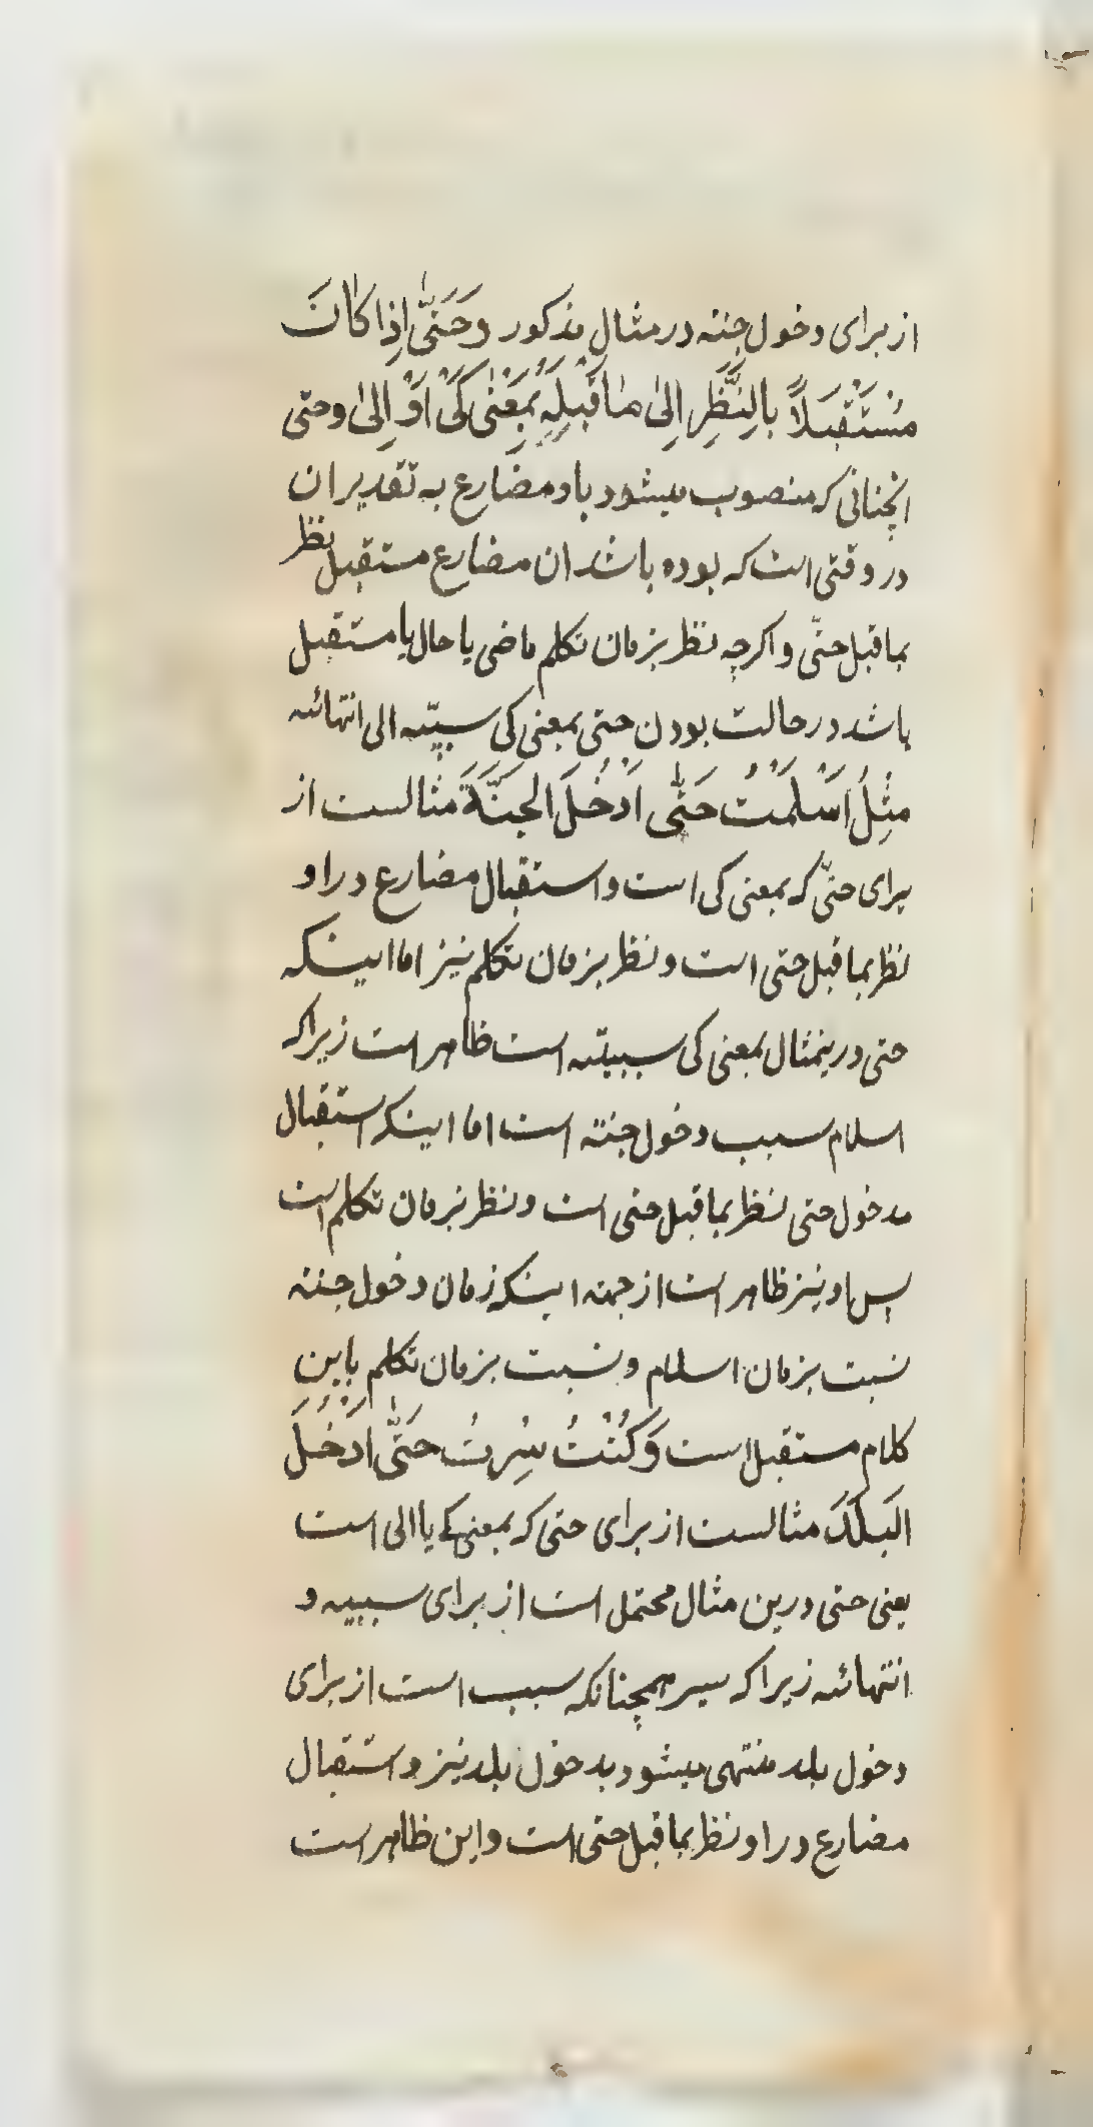 از برای دخول جنته در مثال مذکور وَحَتّٰی اِذا کانَ
مُسْتَقْبَلاً بِالنَّظَرِ اِلیٰ ماقَبْلِهِ بِمَعْنیٰ کَیْ اَوْ اِلیٰ و حتی
انچنانی که منصوب میشود باو مضارع به تقدیر ان
در وقتی است که بوده باشد ان مضارع مستقبل نظر
بماقبل حتّی و اکرچه نظر بزمان تکلم ماضی یا حال یا مستقبل
باشد در حالت بودن حتی بمعنی کی سببیّه الی انتهائیه
مِثْلُ اَسْلَمْتُ حَتّٰی اَدْخُلَ الجَنَّةَ مثالست از
برای حتّی که بمعنی کی است و استقبال مضارع در او
نظر بماقبل حتی است و نظر بزمان تکلم نیز اما اینکه
حتی درینمثال بمعنی کی سببیّه است ظاهر است زیراکه
اسلام سبب دخول جنته است اما اینکه استقبال
مدخول حتی نظر بماقبل حتی است و نظر بزمان تکلم است
پس او نیز ظاهر است از جهته اینکه زمان دخول جنته
نسبت بزمان اسلام و نسبت بزمان تکلم باین
کلام مستقبل است وَکُنْتُ سِرْتُ حَتّٰی اَدْخُلَ
البَلَدَ مثالست از برای حتی که بمعنی کی یا الی است
یعنی حتی درین مثال محتمل است از برای سببیه و
انتهائیه زیراکه سیر همچنانکه سبب است از برای
دخول بلد منتهی میشود بدخول بلد نیز و استقبال
مضارع در او نظر بماقبل حتی است و این ظاهر است